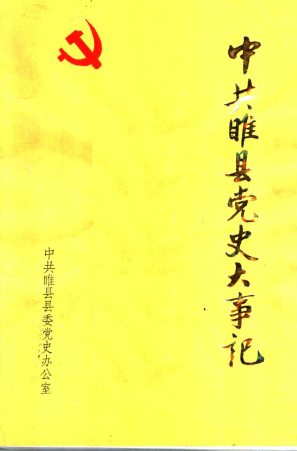 中共睢县党史大事记
中共睢县县委党史办公室